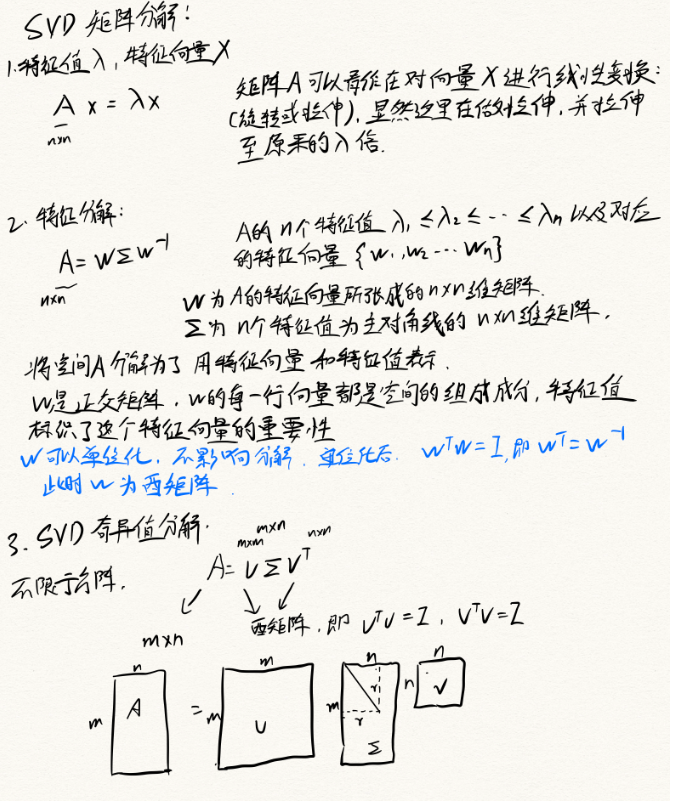 SVD 矩阵分解:
1.特征值 λ, 特征向量 X
A x = λx
n×n
矩阵A可以看作在对向量X进行线性变换:
(旋转或拉伸), 显然这里在做拉伸, 并拉伸
至原来的λ倍.
2. 特征分解:
A = WΣW⁻¹
n×n
A的 n个特征值 λ₁ ≤ λ₂ ≤ ··· ≤ λn 以及对应
的特征向量 {w₁,w₂ ··· wn}
W为A的特征向量所张成的n×n维矩阵.
Σ为n个特征值为主对角线的 n×n维矩阵.
将空间A分解为了 用特征向量和特征值表示.
W是正交矩阵, W的每一行向量都是空间的组成成分, 特征值
标识了这个特征向量的重要性
W可以单位化, 不影响分解. 单位化后. WᵀW = I, 即 Wᵀ = W⁻¹
此时W为酉矩阵.
3. SVD 奇异值分解.
m×m m×n n×n
A = U Σ Vᵀ
不限于方阵.
m×n
酉矩阵, 即 UᵀU = I, VᵀV = I
n m n n
m A = m U m r r Σ n V